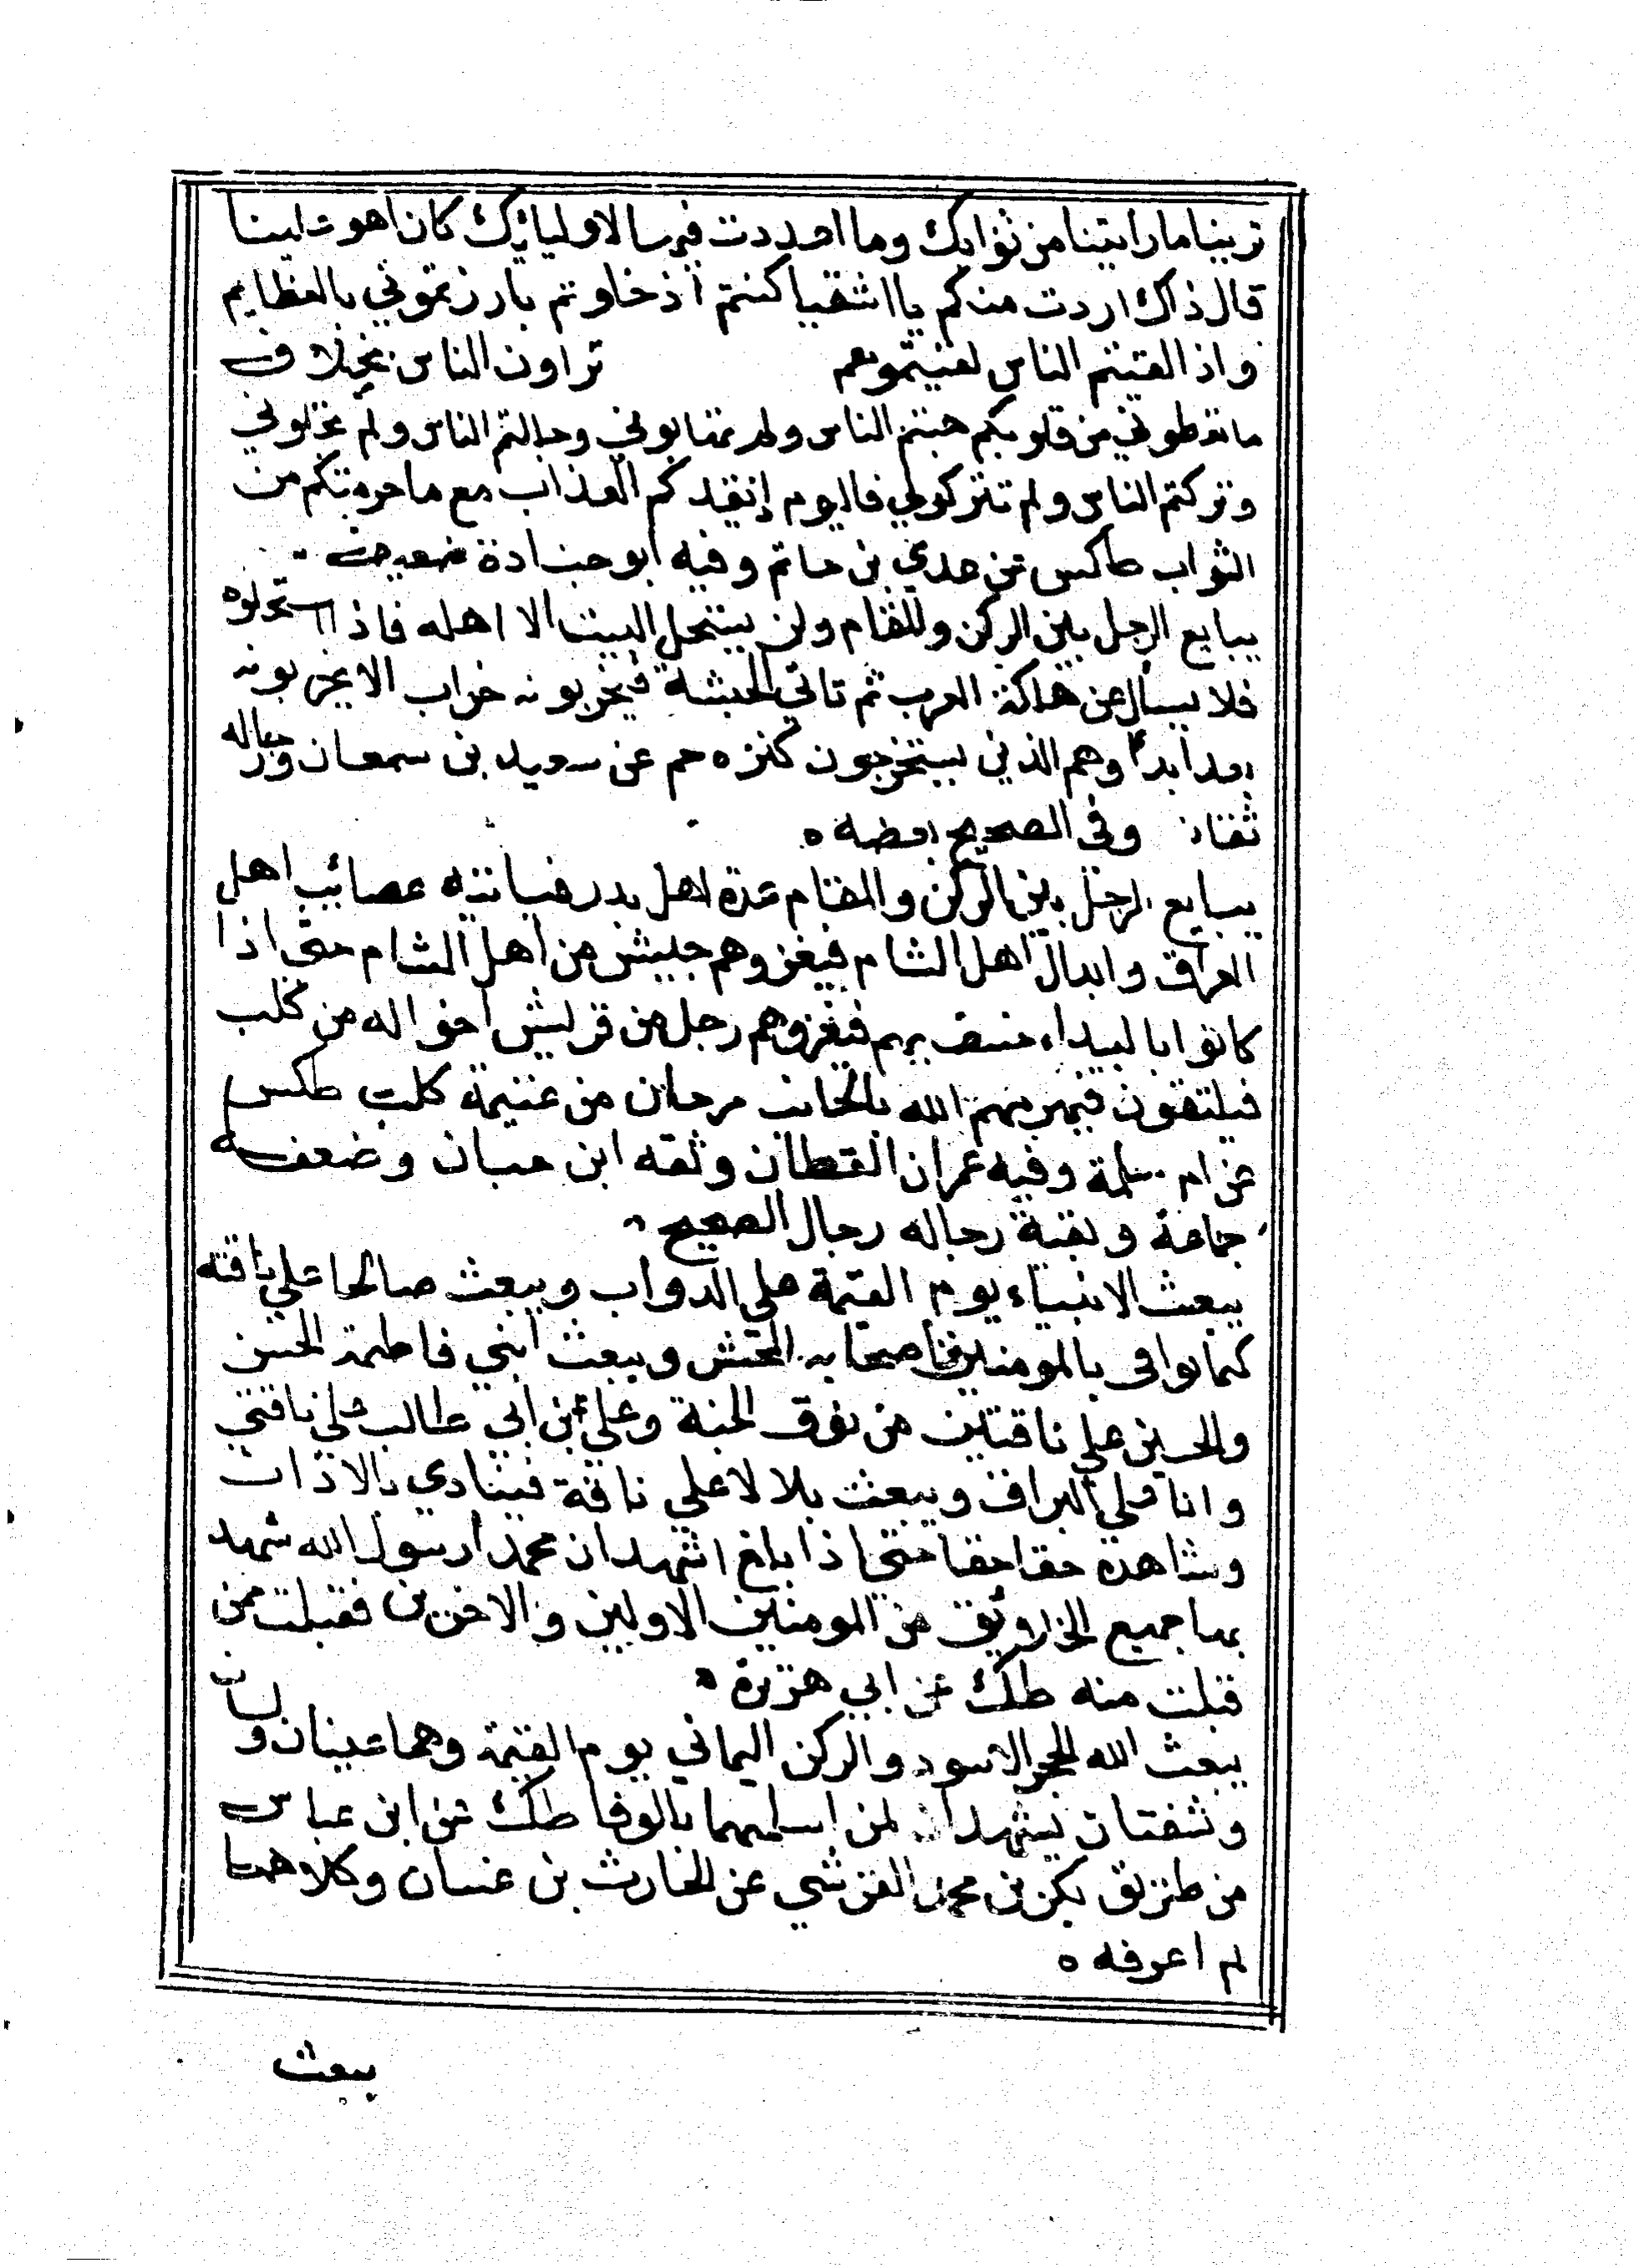 ترينا ما رايتنا من ثوابك وما اعددت فيها لاوليايك كان اهو علينا
قال ذاك اردت منكم يا اشقيا كنتم اذ خلوتم بارزتموني بالعظايم
واذ القيتم الناس لقيتموهم تراون الناس بخلاف
ما تعطوني من قلوبكم هبتم الناس ولم تهابوني وجالتم الناس ولم تجلوني
وتركتم الناس ولم تتركولي فاليوم إنيقدكم العذاب مع ما حرمتكم من
الثواب طاكس عن عدي بن حاتم وفيه ابو جنادة ضعيف
يبايع الرجل بين الركن والمقام ولن يستحل البيت الا اهله فاذا استحلوه
فلا يسأل عن هلكة العرب ثم تاتي الحبشة فيخربونه خراب الا يخربونه
بعد ابداً وهم الذين يستخرجون كنزه حم عن سعيد بن سمعان ورجاله
ثقات وفي الصحيح بعضه ه
يبايع الرجل بين الركن والمقام عدة اهل بدر فياتيه عصائب اهل
العراق وابدال اهل الشام فيغزوهم جيش من اهل الشام حتى اذا
كانوا بالبيداء خسف بهم فيغزوهم رجل من قريش اخواله من كلب
فيلتقون فيهزمهم الله بالخائب من غنيمة كلب طكس
عن ام سلمة وفيه عمران القطان وثقه ابن حبان وضعفه
جماعة وبقية رجاله رجال الصحيح
يبعث الانبياء يوم القيمة على الدواب ويبعث صالحا علي ناقته
كيما يوافى بالمومنين من اصحابه المحشر ويبعث ابني فاطمة الحسن
والحسين علي ناقتين من نوق الجنة وعلي بن ابي طالب علي ناقتي
وانا علي البراق ويبعث بلالا علي ناقة فينادي بالاذان
وشاهده حقا حقا حتى اذا بلغ اشهد ان محمدا رسول الله شهد
بها جميع الخلايق من المومنين الاولين والاخرين فقبلت ممن
قبلت منه طك عن ابي هريرة ه
يبعث الله الحجر الاسود والركن اليماني يوم القيمة وهما عينان ولسان
وشفتان يشهدان لمن استلمهما بالوفا طك عن ابن عباس
من طريق بكر بن محمد القرشي عن الحارث بن غسان وكلاهما
لم اعرفه ه
يبعث